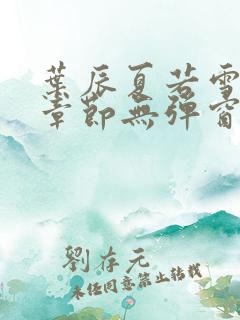 葉辰夏若雪
章節無彈窗
劉存元
未經同意禁止轉載